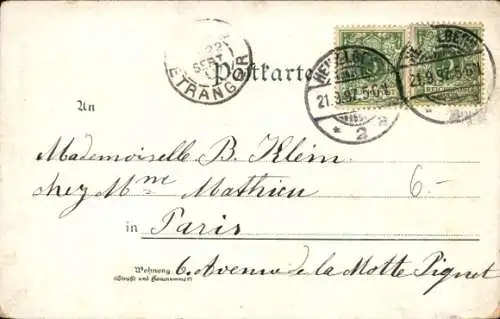 22
SEPT
ETRANGER
Postkarte
HEIDELBERG
21.9.97. 5-6 N.
* 2 a
21.9.97. 5-6 N.
An
Mademoiselle B. Klein
chez Mme Mathieu 6.-
in Paris
Wohnung 6. Avenue de la Motte Piquet
(Straße und Hausnummer)